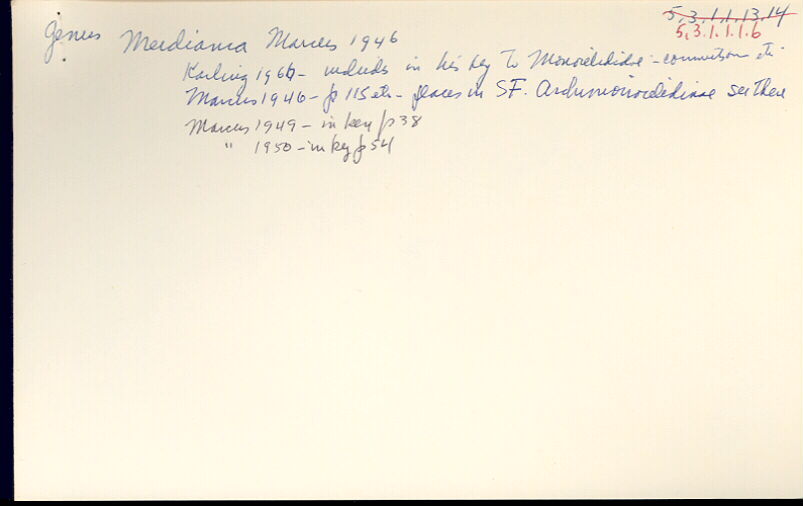 5,3.1.1.13.14
5,3.1.1.1.6
Genus Meidiama Marcus 1946
Karling 1966 - includes in his key to Monocelididae - connection etc
Marcus 1946 - p 115 etc - places in SF. Archimonocelidinae see there
Marcus 1949 - in key p 38
" 1950 - in key p 54